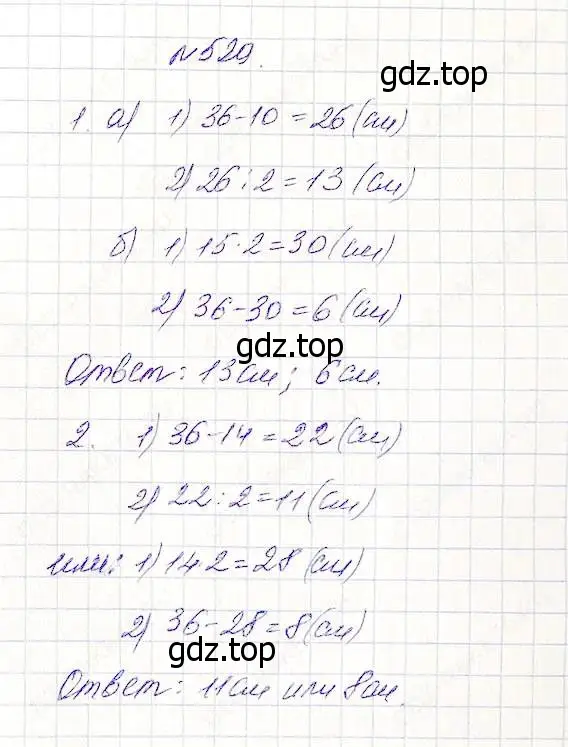 №529.
gdz.top
1. а) 1) 36-10=26(см)
2) 26:2=13(см)
б) 1) 15·2=30(см)
2) 36-30=6(см)
gdz.top
Ответ: 13см; 6см.
2. 1) 36-14=22(см)
2) 22:2=11(см)
или: 1) 14·2=28(см)
2) 36-28=8(см)
gdz.top
Ответ: 11см или 8см.